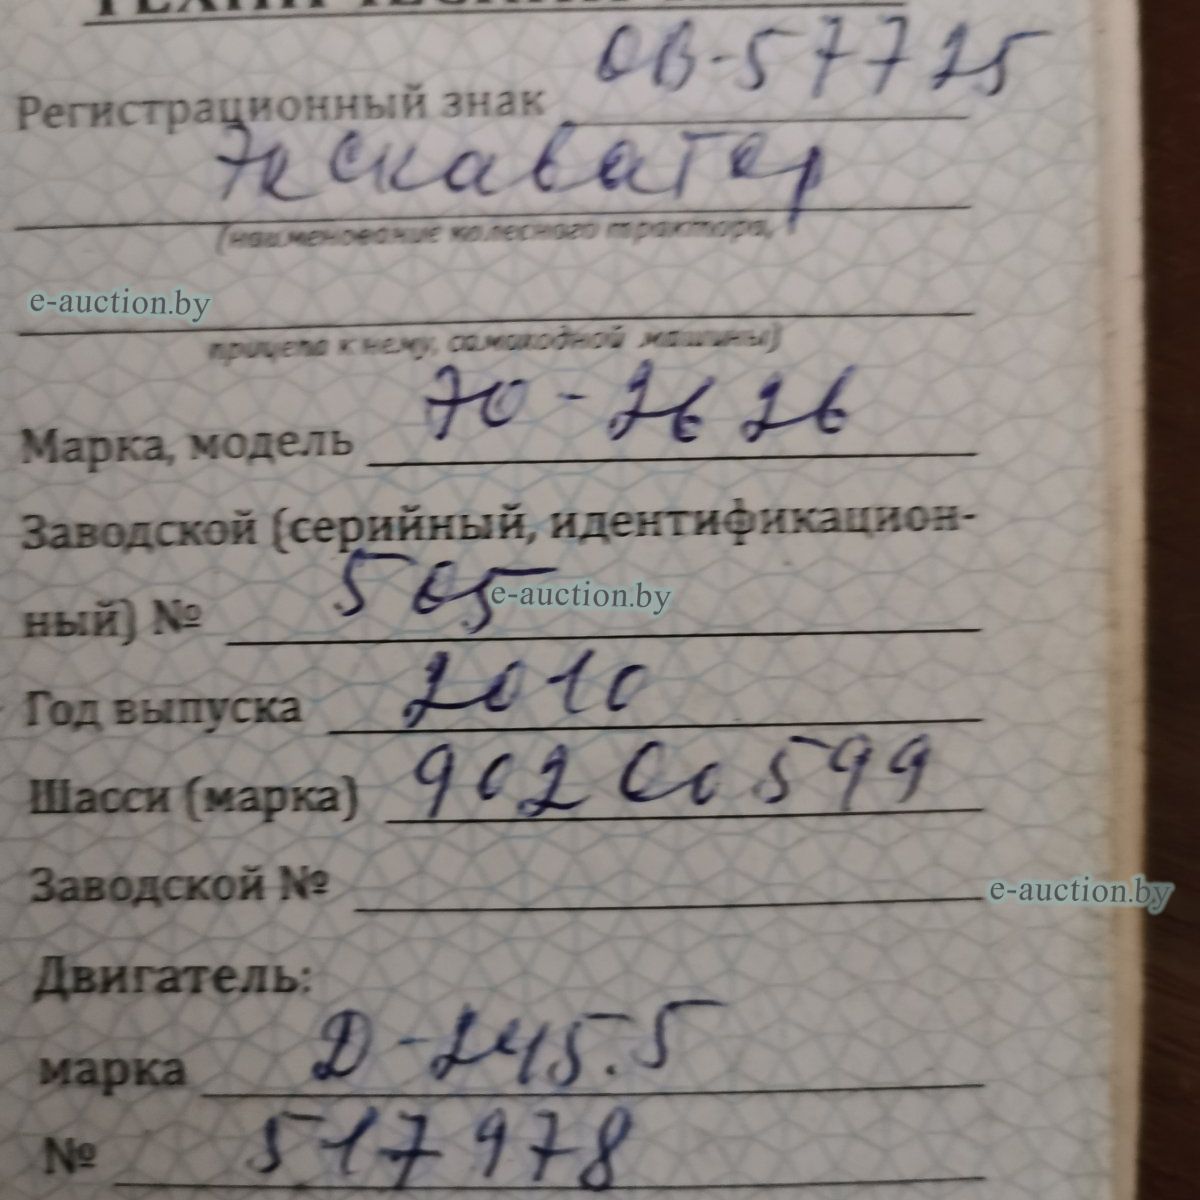 ТЕХНИЧЕСКИЙ
Регистрационный знак ОВ-5 7725
Экскаватор
(наименование колесного трактора,
e-auction.by
прицепа к нему, самоходной машины)
Марка, модель ЭО-2626
Заводской (серийный, идентификацион-
ный) № 505 e-auction.by
Год выпуска 2010
Шасси (марка) 90200599
Заводской № e-auction.by
Двигатель:
марка Д-245.5
№ 517978